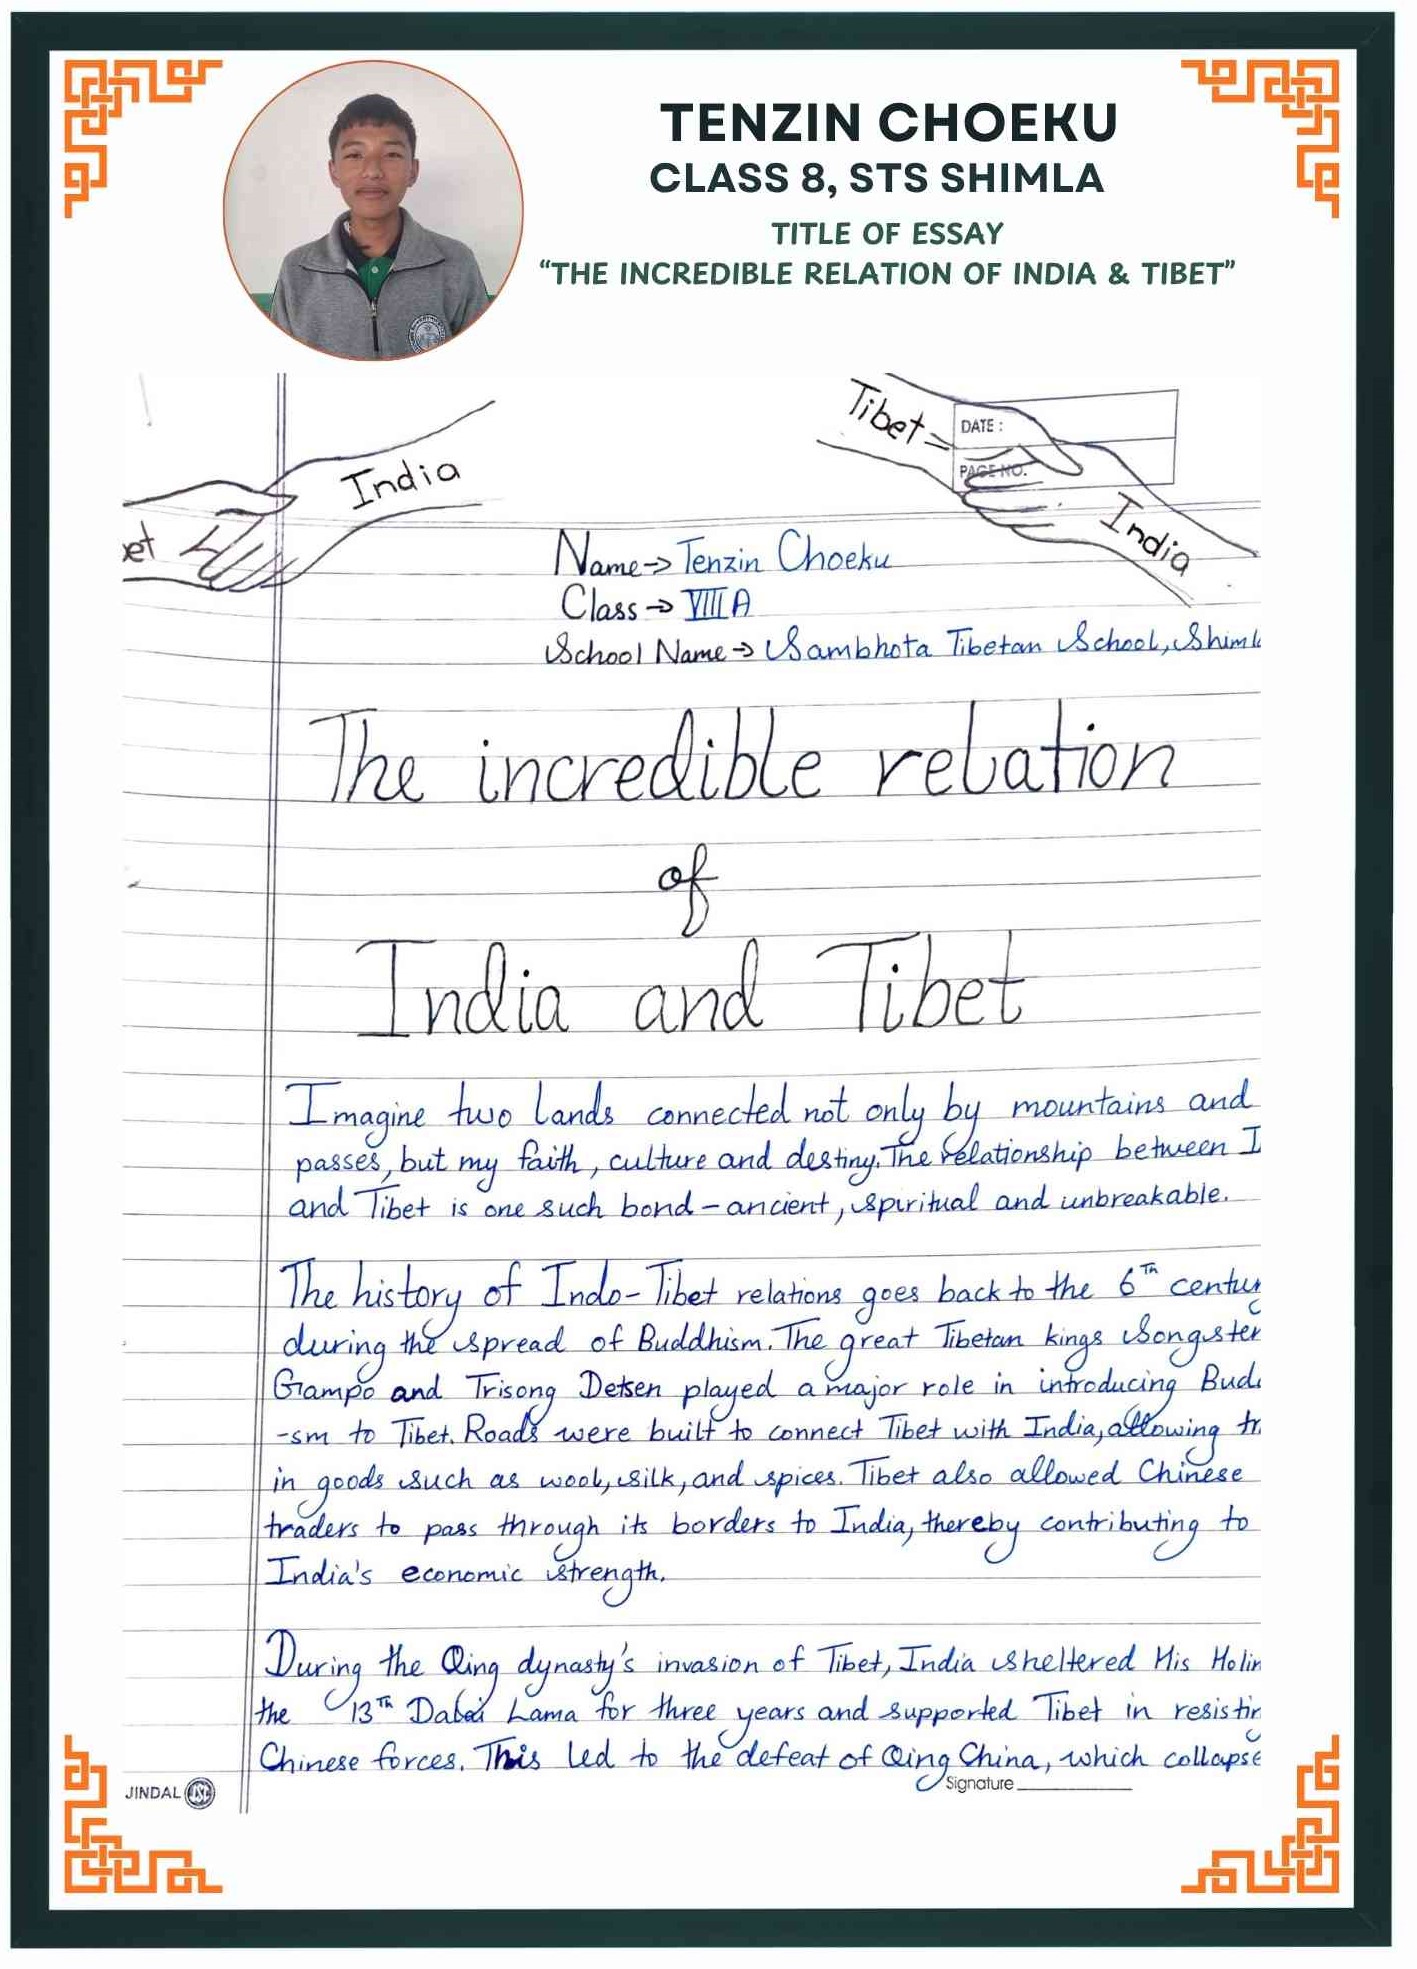 TENZIN CHOEKU
CLASS 8, STS SHIMLA
TITLE OF ESSAY
“THE INCREDIBLE RELATION OF INDIA & TIBET”
India
et
Tibet =
DATE :
PAGE NO.
India
Name → Tenzin Choeku
Class → VIII A
School Name → Sambhota Tibetan School, Shiml
The incredible relation
of
India and Tibet
Imagine two lands connected not only by mountains and
passes, but my faith, culture and destiny. The relationship between I
and Tibet is one such bond – ancient, spiritual and unbreakable.
The history of Indo-Tibet relations goes back to the 6Th centur
during the spread of Buddhism. The great Tibetan kings Songster
Gampo and Trisong Detsen played a major role in introducing Bud
-sm to Tibet. Roads were built to connect Tibet with India, allowing tr
in goods such as wool, silk, and spices. Tibet also allowed Chinese
traders to pass through its borders to India, thereby contributing to
India's economic strength.
During the Qing dynasty's invasion of Tibet, India sheltered His Holin
the 13Th Dalai Lama for three years and supported Tibet in resistin
Chinese forces. This led to the defeat of Qing China, which collapse
JINDAL
Signature